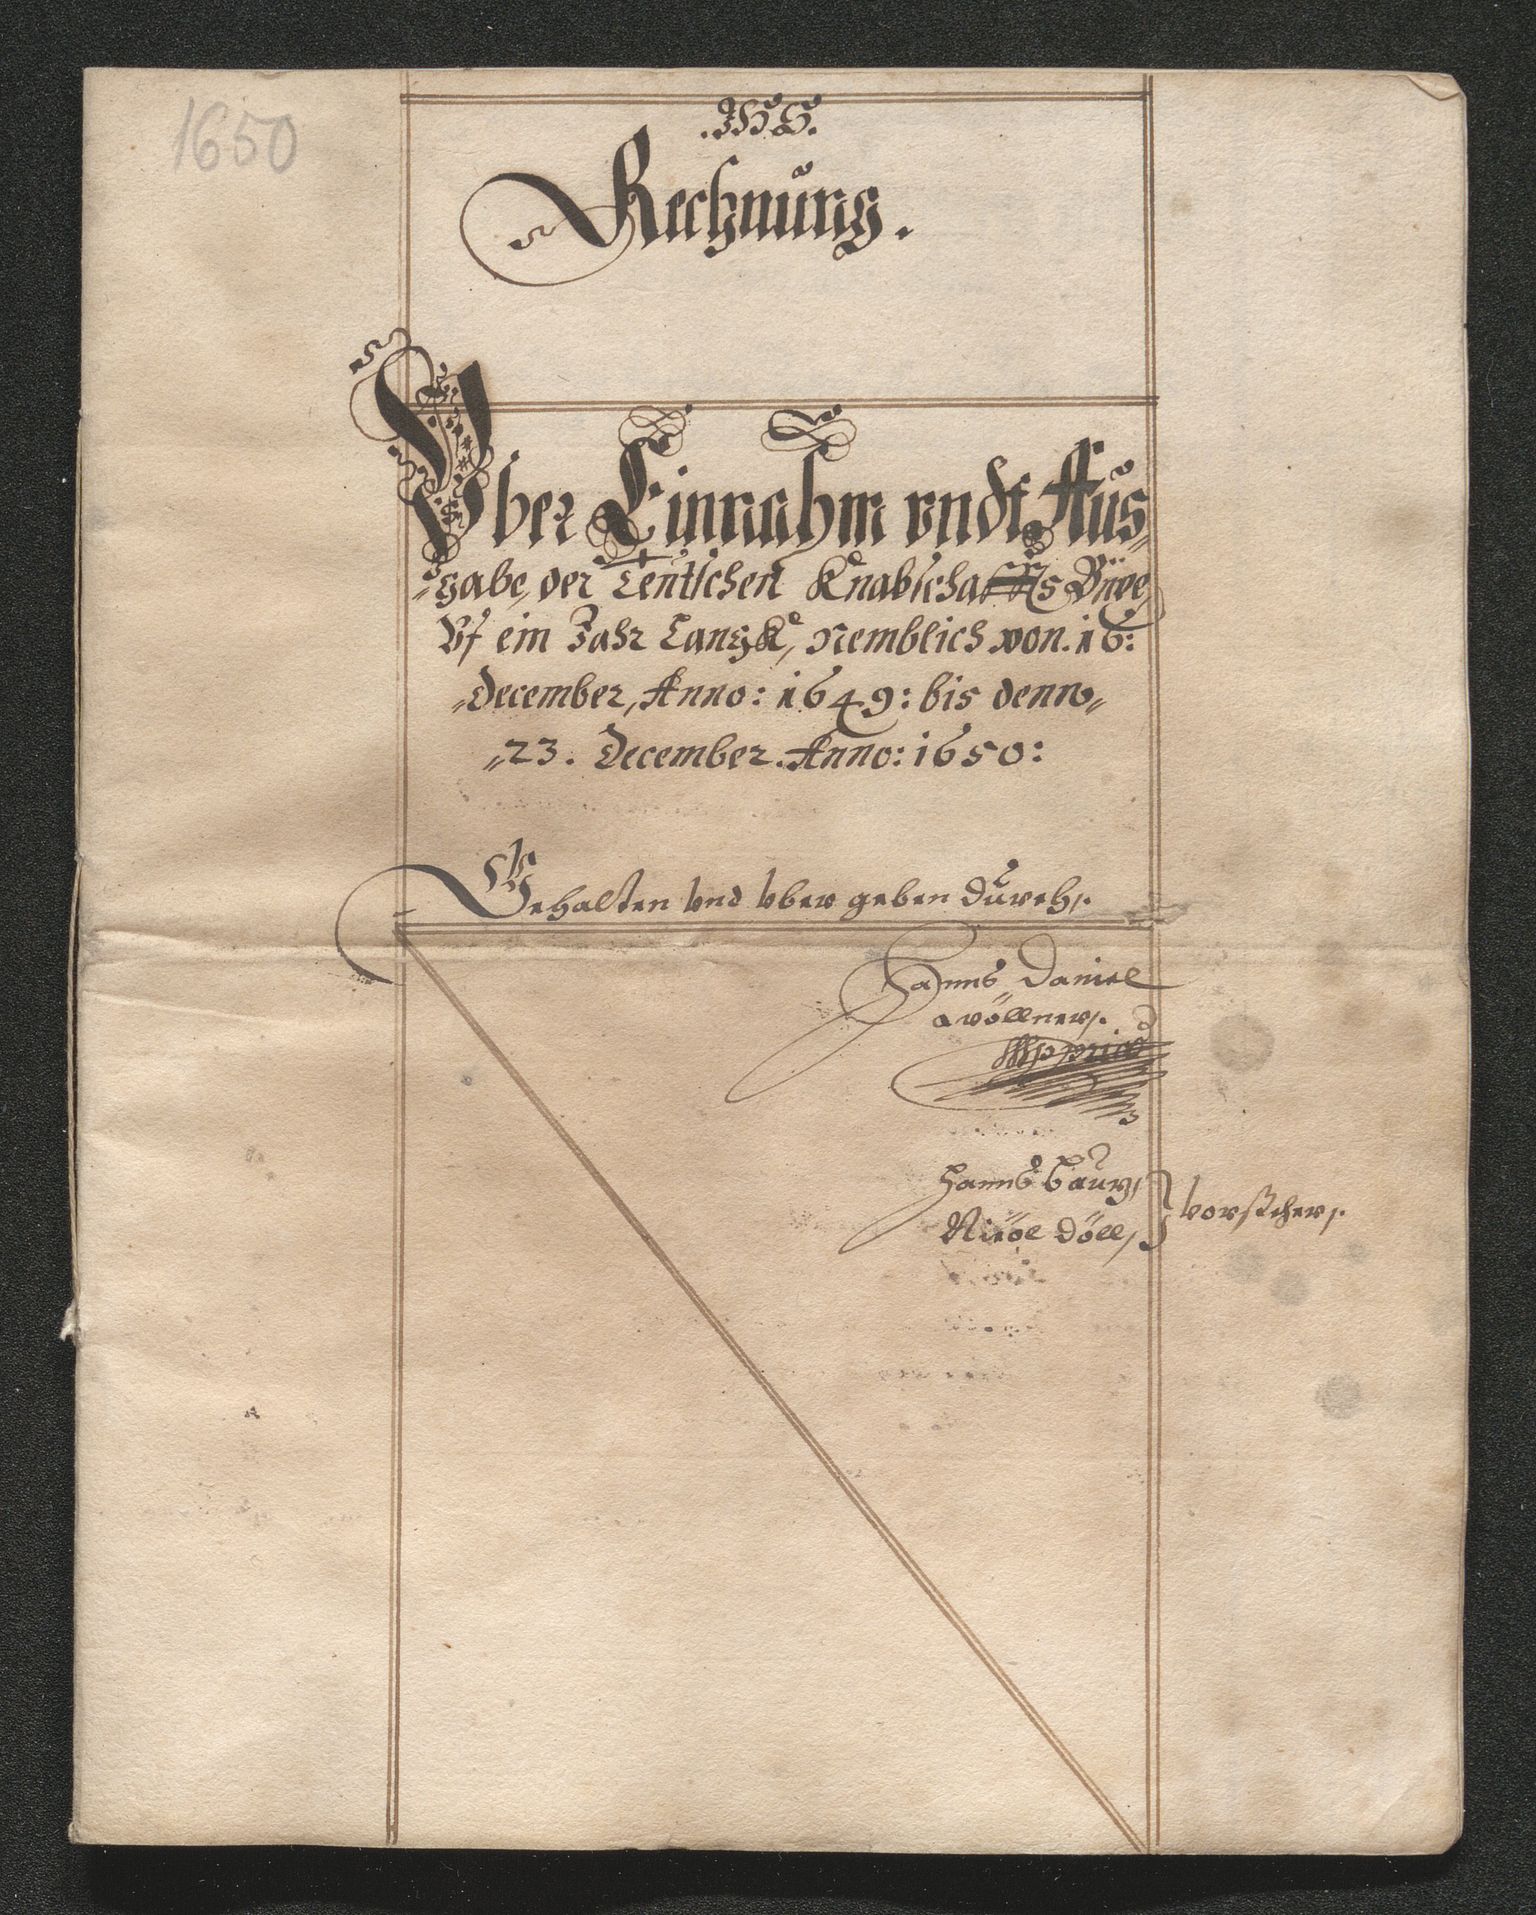 1650
.IHS.
Rechnung.
Vber Einnahm vndt Aus,,
,,gabe, der Teutschen Knabschaffts Büxe,
Vf ein Jahr Langk, Nemblich von. 16:
,,December, Anno: 1649: bis denn,,
,,23. December. Anno: 1650:
Gehalten vnd vber geben durch,.
Hanns Daniel
Wöllner,.
Mppria
Hanns Baur,
Nicöl Döll,
Vorsteher,.